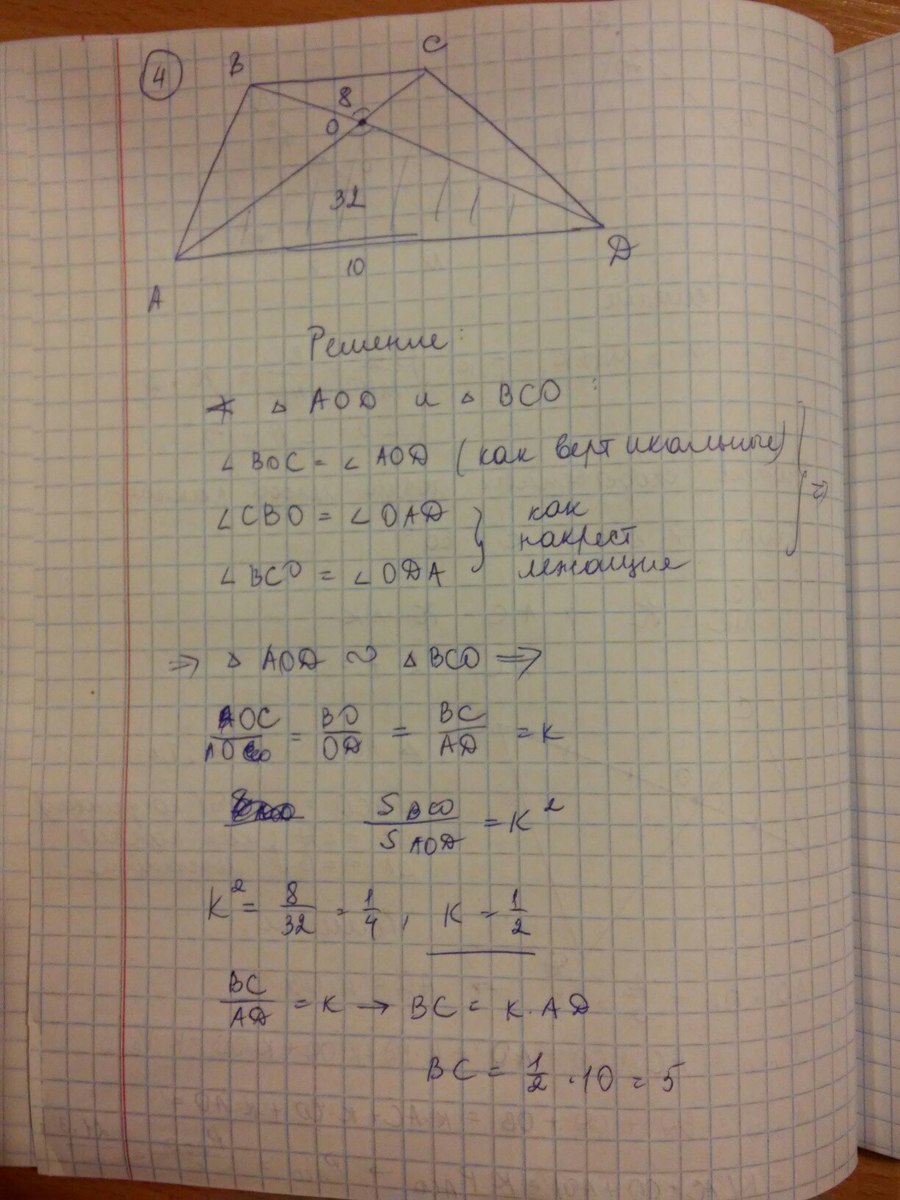 4
B
C
8
O
32
10
A
D
Решение:
∗ △ AOD и △ BCO :
∠ BOC = ∠ AOD (как вертикальные)
∠ CBO = ∠ OAD } как
накрест
∠ BCO = ∠ ODA лежащие
⇒
⇒ △ AOD ∾ △ BCO ⇒
OC/AO = BO/OD = BC/AD = K
S BCO / S AOD = K²
K² = 8/32 = 1/4 , K = 1/2
BC/AD = K → BC = K · AD
BC = 1/2 · 10 = 5